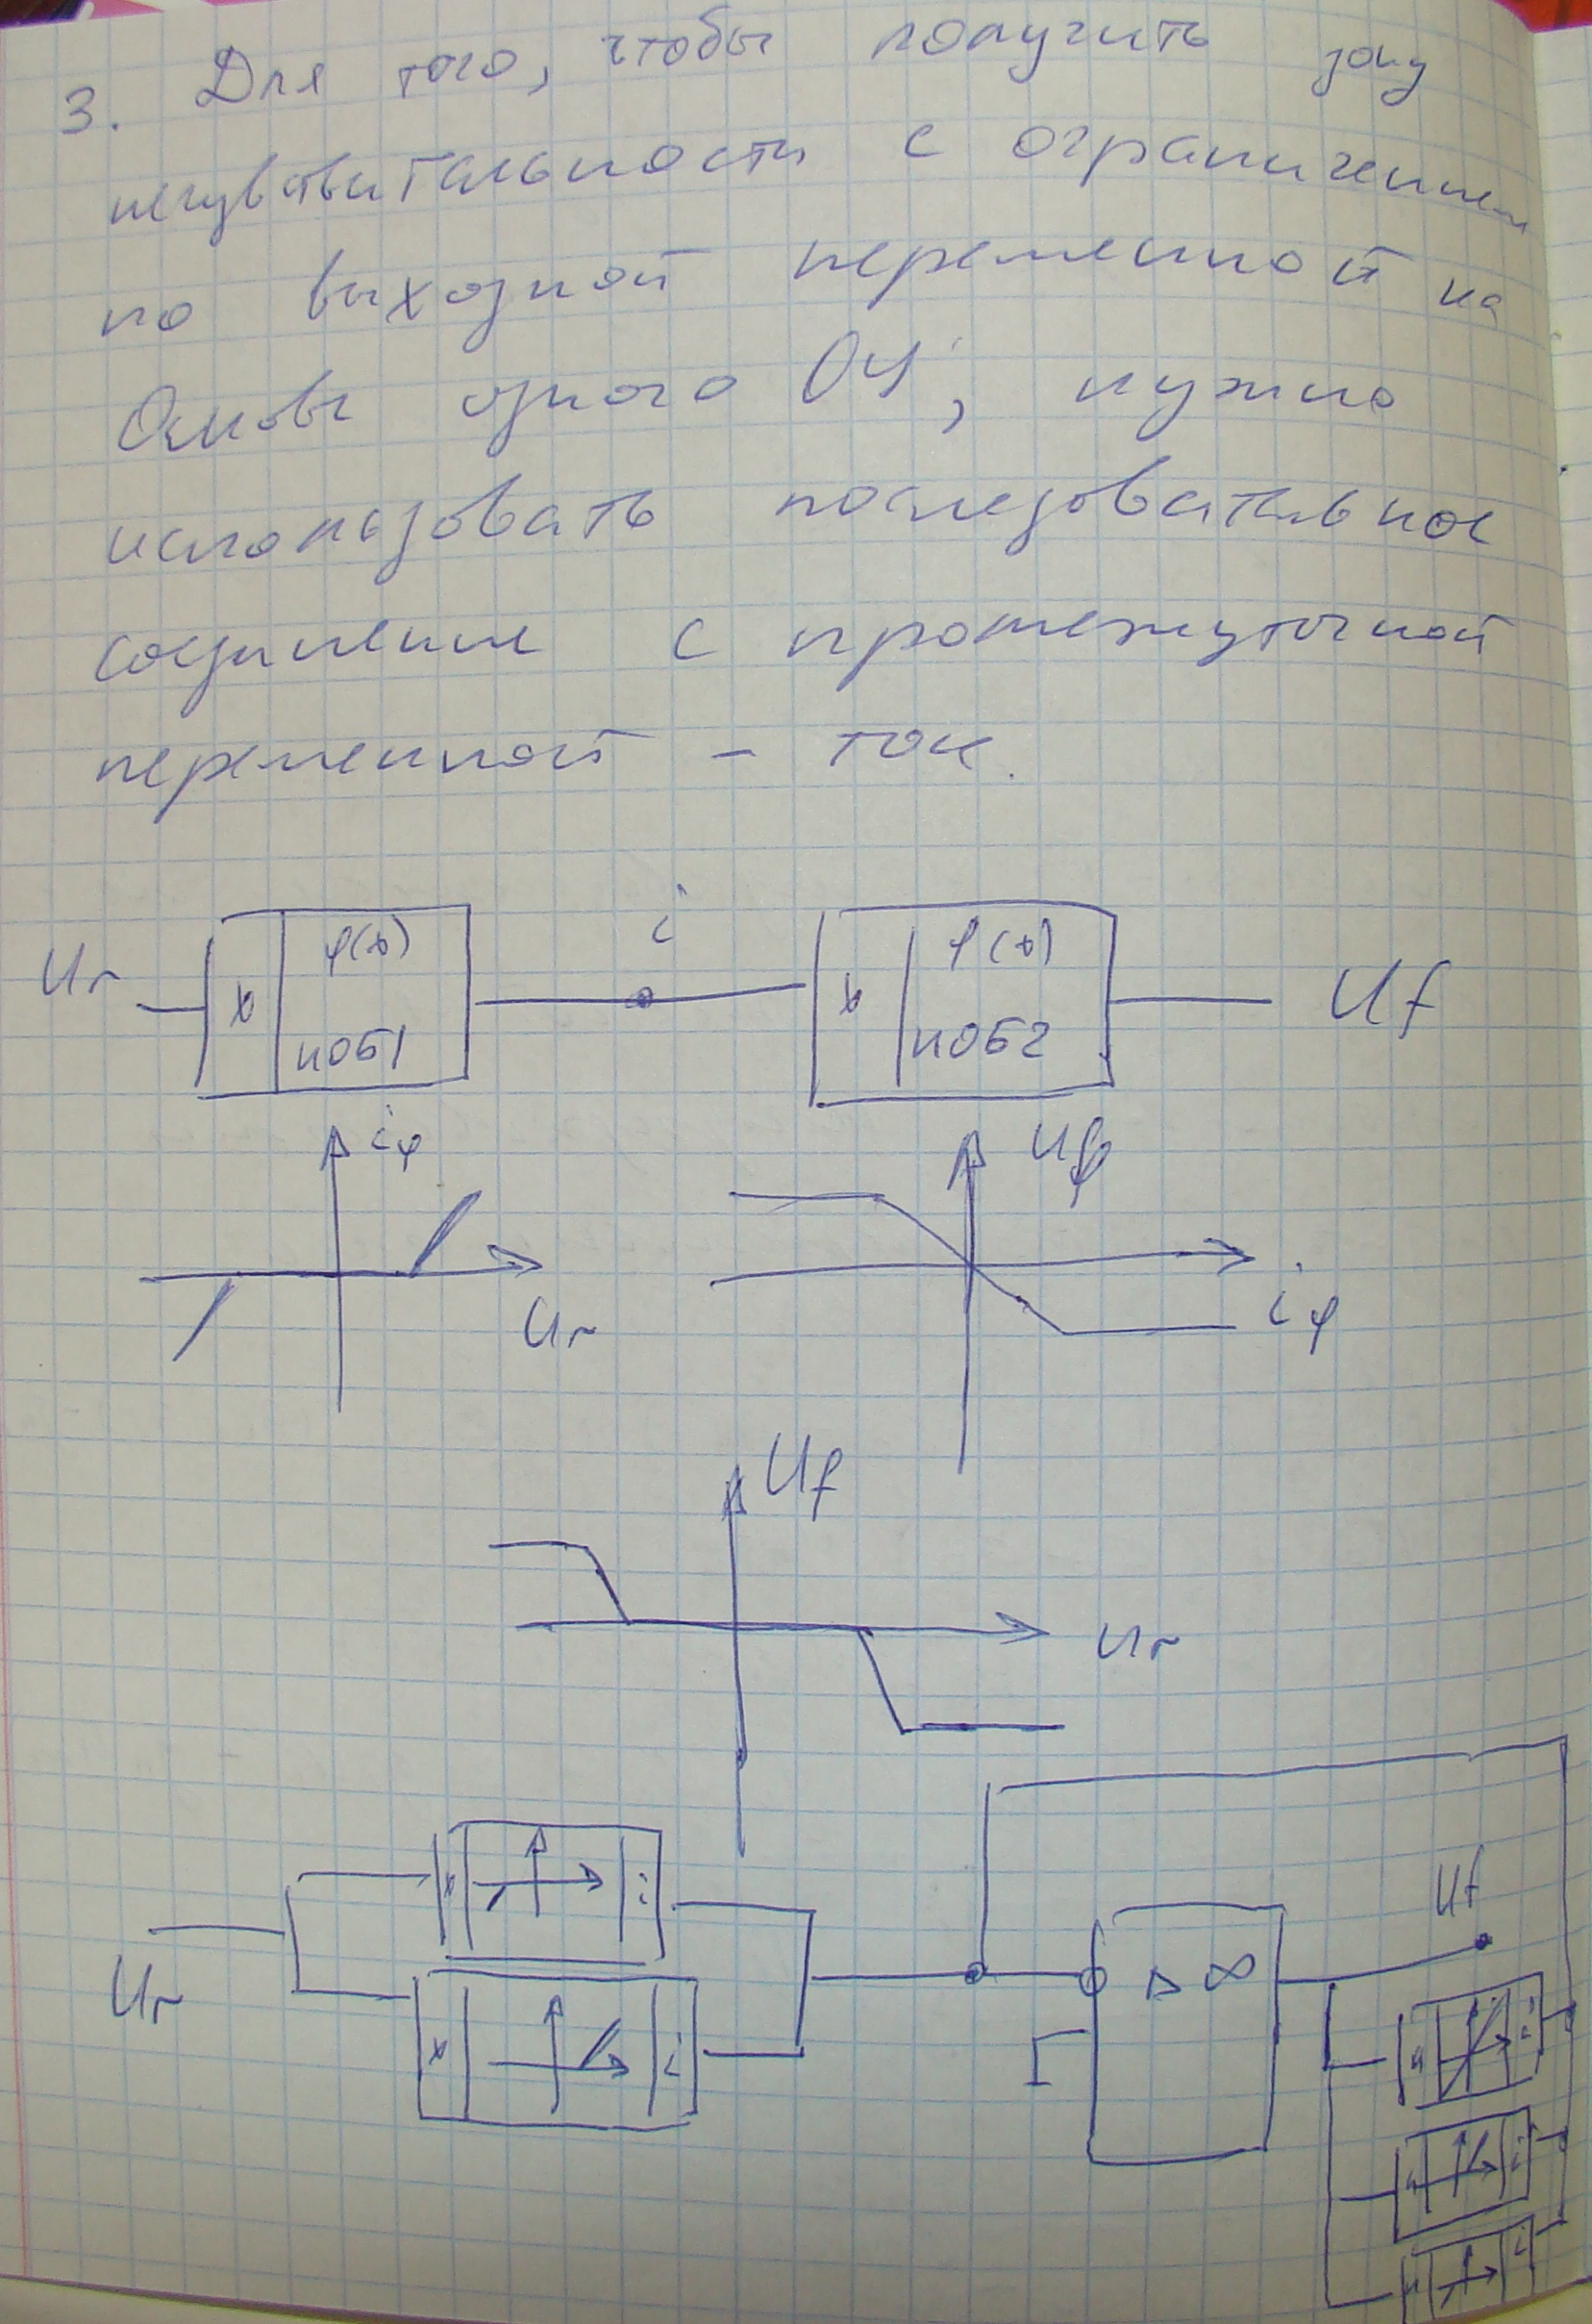 3. Для того, чтобы получить зону
нечувствительности с ограничением
по выходной переменной на
Основе одного ОУ, нужно
использовать последовательное
соединение с промежуточной
переменной - ток.
Ur x φ(x) НОБ1 i x φ(x) НОБ2 Uf
iφ Uφ
Ur iφ
Uf
Ur
x i
Uf
Ur x i ▷ ∞
u i
u i
u i